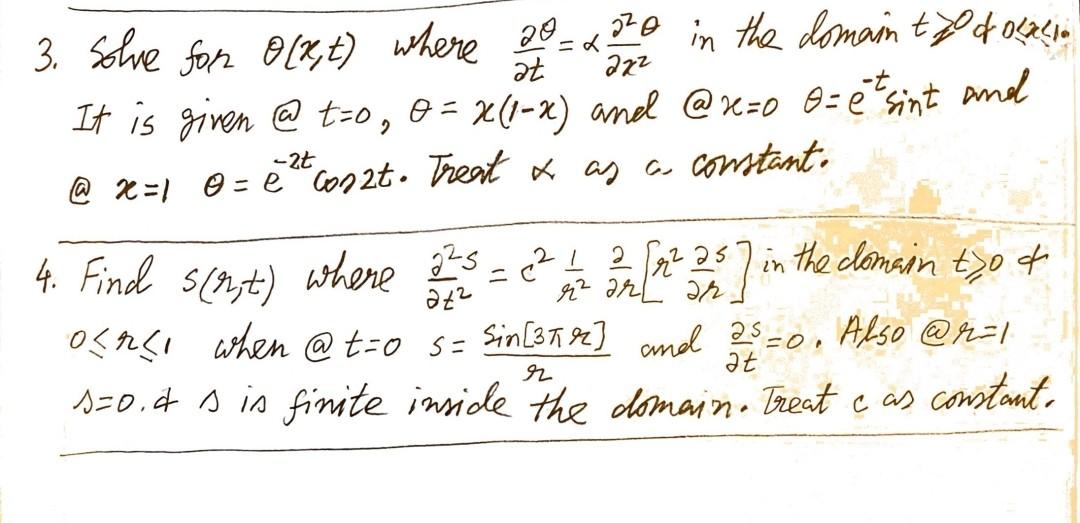 3. Solve for θ(x,t) where ∂θ/∂t = α ∂²θ/∂x² in the domain t≥0 & 0≤x≤1.
It is given @ t=0, θ = x(1-x) and @ x=0 θ=e^{-t} sint and
@ x=1 θ = e^{-2t} cos2t. Treat α as a constant.
4. Find s(r,t) where ∂²s/∂t² = c² 1/r² ∂/∂r [r² ∂s/∂r] in the domain t≥0 &
0≤r≤1 when @ t=0 s= sin[3πr]/r and ∂s/∂t=0. Also @ r=1
s=0. & s is finite inside the domain. Treat c as constant.